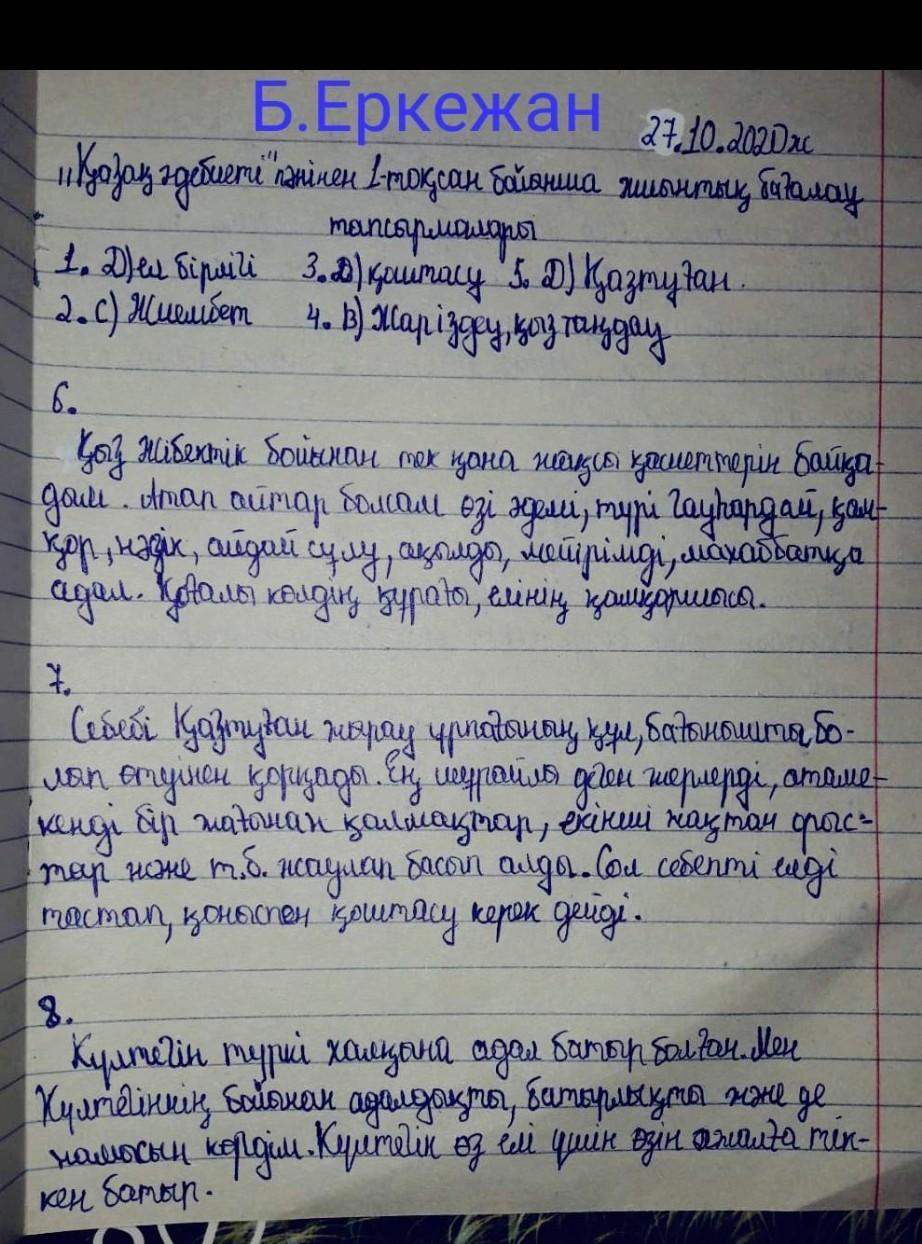 Б.Еркежан
27.10.2020ж
"Қазақ әдебиеті" пәнінен 1-тоқсан бойынша жиынтық бағалау
тапсырмалары
1. D) ел бірлігі 3. D) қоштасу 5. D) Қазтуған.
2. C) Жиембет 4. B) Жар іздеу, қыз таңдау
6.
Қыз Жібектік бойынан тек қана жақсы қасиеттерін байқа-
дым. Атап айтар болсам өзі әдемі, түрі гауһардай, қам-
қор, нәзік, айдай сұлу, ақылды, мейірімді, махаббатқа
адал. Қоғалы көлдің құрағы, елінің қамқоршысы.
7.
Себебі Қазтуған жырау ұрпағының құл, бағынышты бо-
лып өтуінен қорқады. Ең шұрайлы деген жерлерді, атаме-
кенді бір жағынан қалмақтар, екінші жақтан орыс-
тар және т.б. жаулап басып алды. Сол себепті елді
тастап, қоныспен қоштасу керек дейді.
8.
Күлтегін түркі халқына адал батыр болған. Мен
Күлтегіннің бойынан адалдықты, батырлықты және де
намысын көрдім. Күлтегін өз елі үшін өзін ажалға тік-
кен батыр.